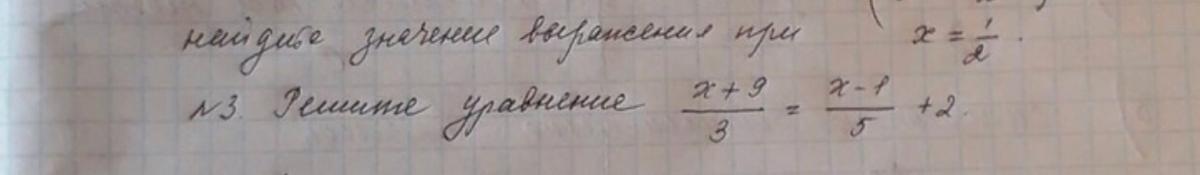 найдите значение выражения при x = 1/2.
N3. Решите уравнение (x+9)/3 = (x-1)/5 + 2.